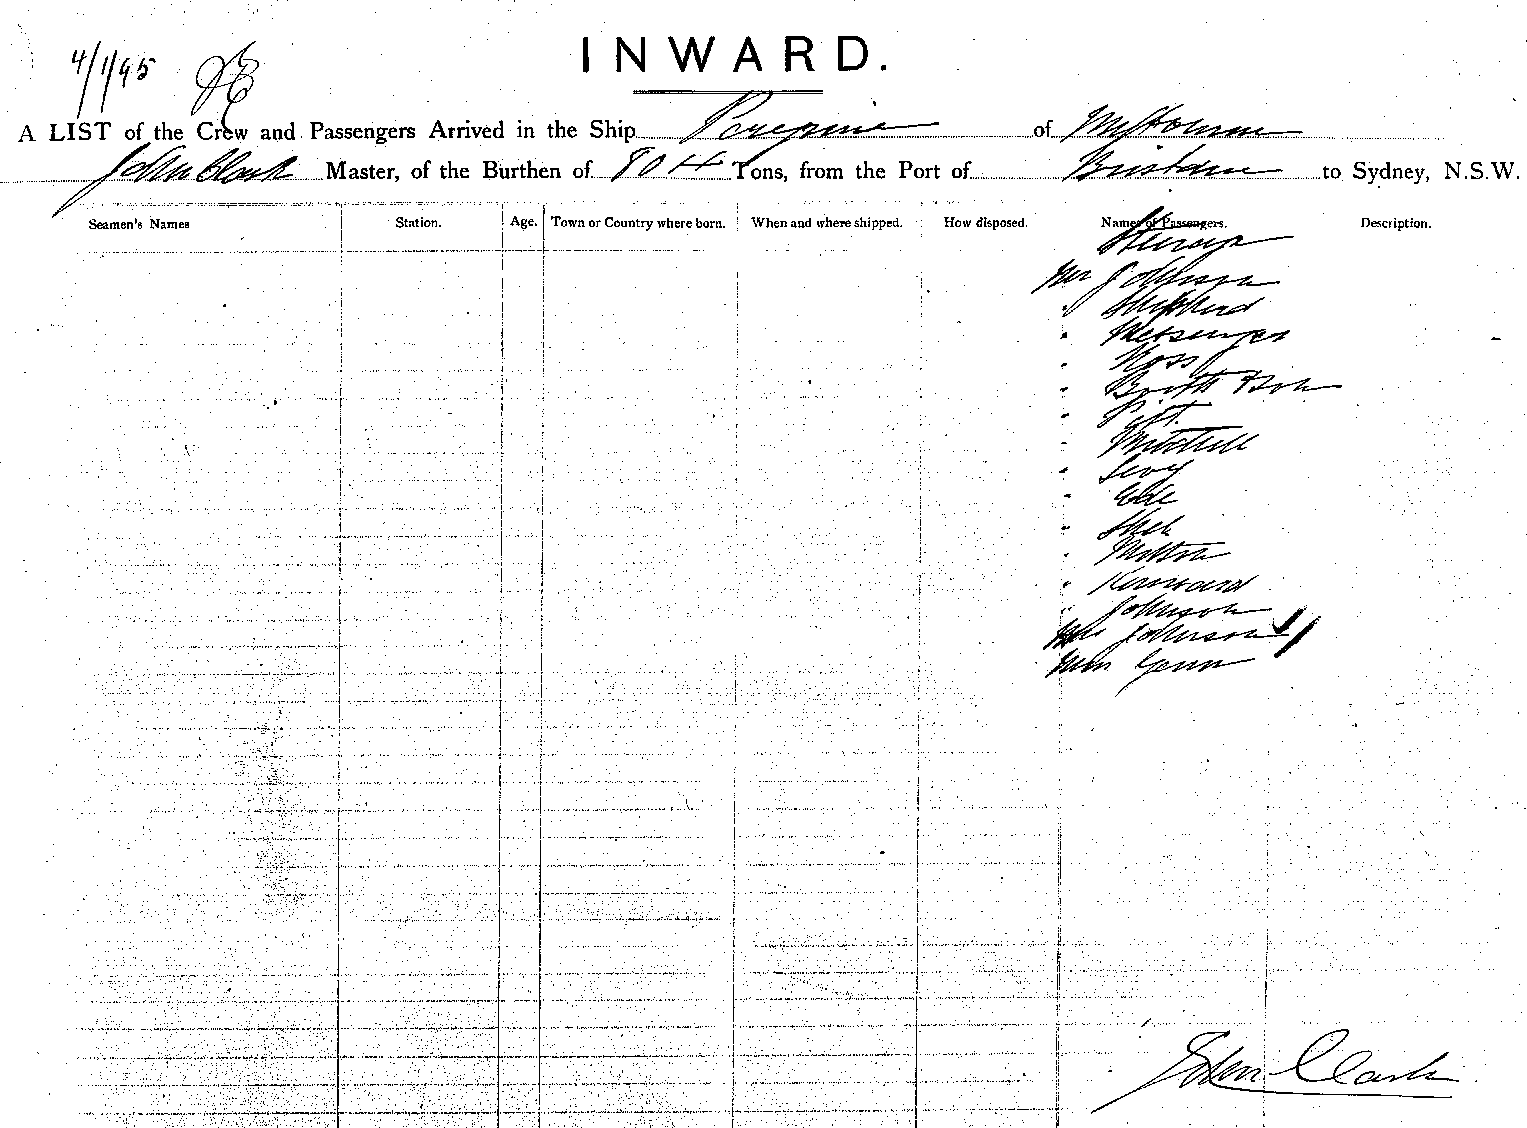 INWARD.
4/1/95
A LIST of the Crew and Passengers Arrived in the Ship Peregrine of Melbourne
John Clark Master, of the Burthen of 904 Tons, from the Port of Brisbane to Sydney, N.S.W.
Seamen's Names Station. Age. Town or Country where born. When and where shipped. How disposed. Names of Passengers. Description.
Steerage
Mr Johnson
" Shepherd
" Messenger
" Ross
" Booth & Son
" Pitt
" Mitchell
" Levy
" Ede
"
" Mitton
" Kennard
" Johnson
Mrs Johnson
Miss
John Clark